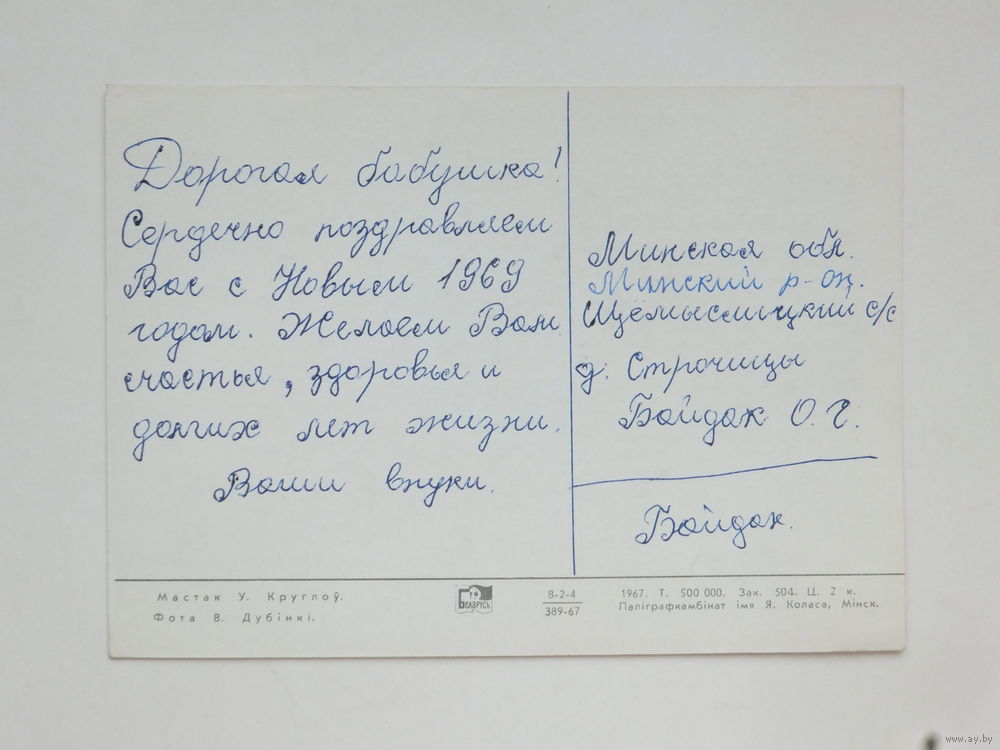 Дорогая бабушка!
Сердечно поздравляем
Вас с Новым 1969
годом. Желаем Вам
счастья, здоровья и
долгих лет жизни.
Ваши внуки.
Минская обл.
Минский р-он.
Щемыслицкий с/с
д. Строчицы
Байдак О. Г.
Байдак.
Мастак У. Круглоў.
Фота В. Дубінкі.
Беларусь
8-2-4
389-67
1967. Т. 500 000. Зак. 504. Ц. 2 к.
Паліграфкамбінат імя Я. Коласа, Мінск.
www.ay.by